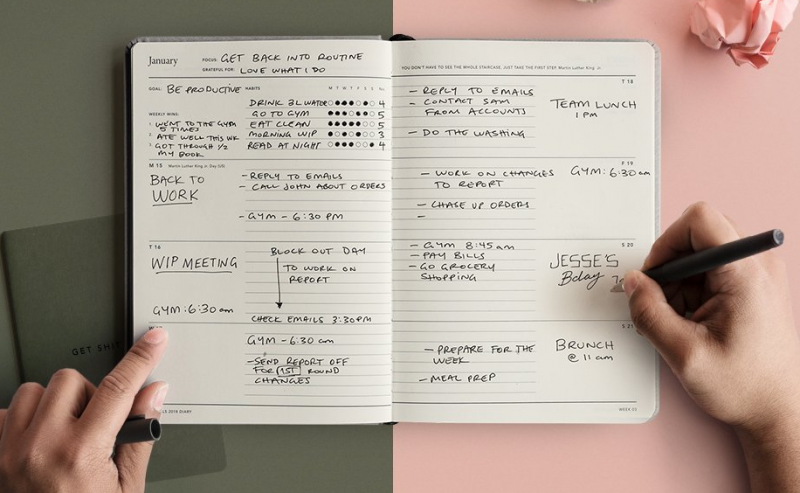 January
FOCUS: GET BACK INTO ROUTINE
GRATEFUL FOR: LOVE WHAT I DO
GOAL: BE PRODUCTIVE
HABITS M T W T F S S No.
DRINK 3L WATER 4
GO TO GYM 5
EAT CLEAN 5
MORNING WIP 3
READ AT NIGHT 4
WEEKLY WINS:
1. WENT TO THE GYM
5 TIMES
2. ATE WELL THIS WK
3. GOT THROUGH 1/2
MY BOOK
M 15 Martin Luther King Jr. Day (US)
BACK TO
WORK
- REPLY TO EMAILS
- CALL JOHN ABOUT ORDERS
- GYM - 6:30 PM
T 16
WIP MEETING
GYM: 6:30 am
BLOCK OUT DAY
TO WORK ON
REPORT
CHECK EMAILS 3:30PM
GYM - 6:30 am
- SEND REPORT OFF
FOR 1ST ROUND
CHANGES
2018 DIARY
GET SHIT
YOU DON'T HAVE TO SEE THE WHOLE STAIRCASE, JUST TAKE THE FIRST STEP. Martin Luther King Jr.
T 18
- REPLY TO EMAILS
- CONTACT SAM
FROM ACCOUNTS
- DO THE WASHING
TEAM LUNCH
1 PM
F 19
- WORK ON CHANGES
TO REPORT
- CHASE UP ORDERS
-
GYM: 6:30 am
S 20
- GYM 8:45 am
- PAY BILLS
- GO GROCERY
SHOPPING
JESSE'S
Bday
S 21
- PREPARE FOR THE
WEEK
- MEAL PREP
BRUNCH
@ 11 am
WEEK 03